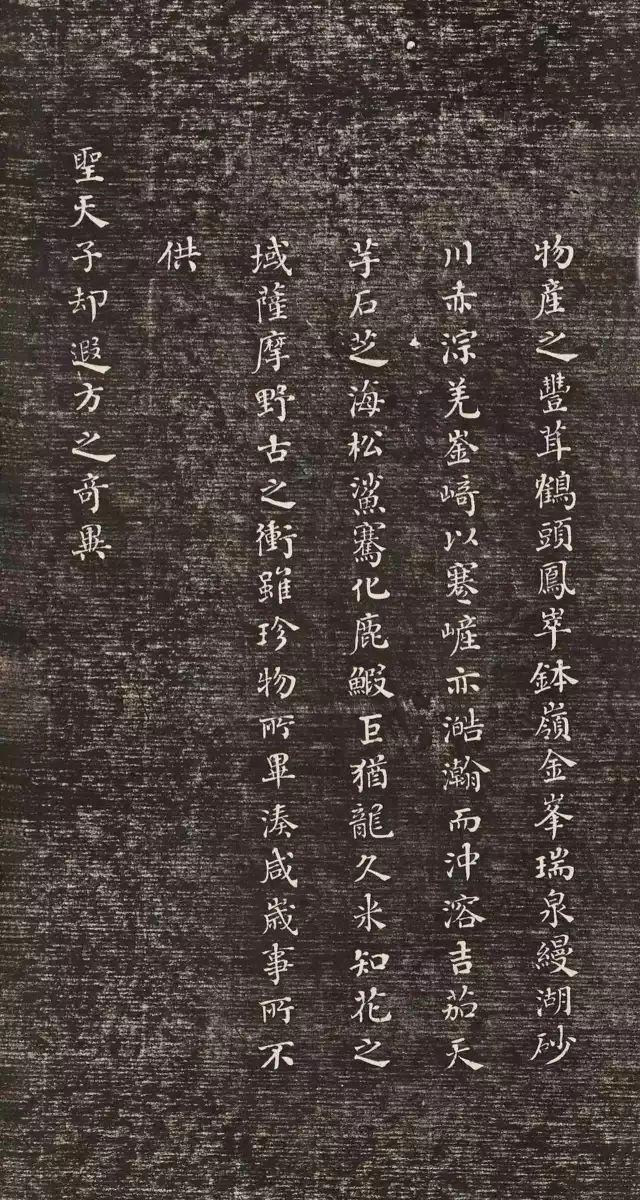 物產之豐茸鶴頭鳳崒鉢嶺金峯瑞泉縵湖砂
川赤淙羌崟﨑以寒嵼亦澔瀚而沖溶吉茄天
芋石芝海松鯊騫化鹿鰕巨猶龍久米知花之
域薩摩野古之衝雖珍物所畢湊咸歲事所不
供
聖天子却遐方之奇異